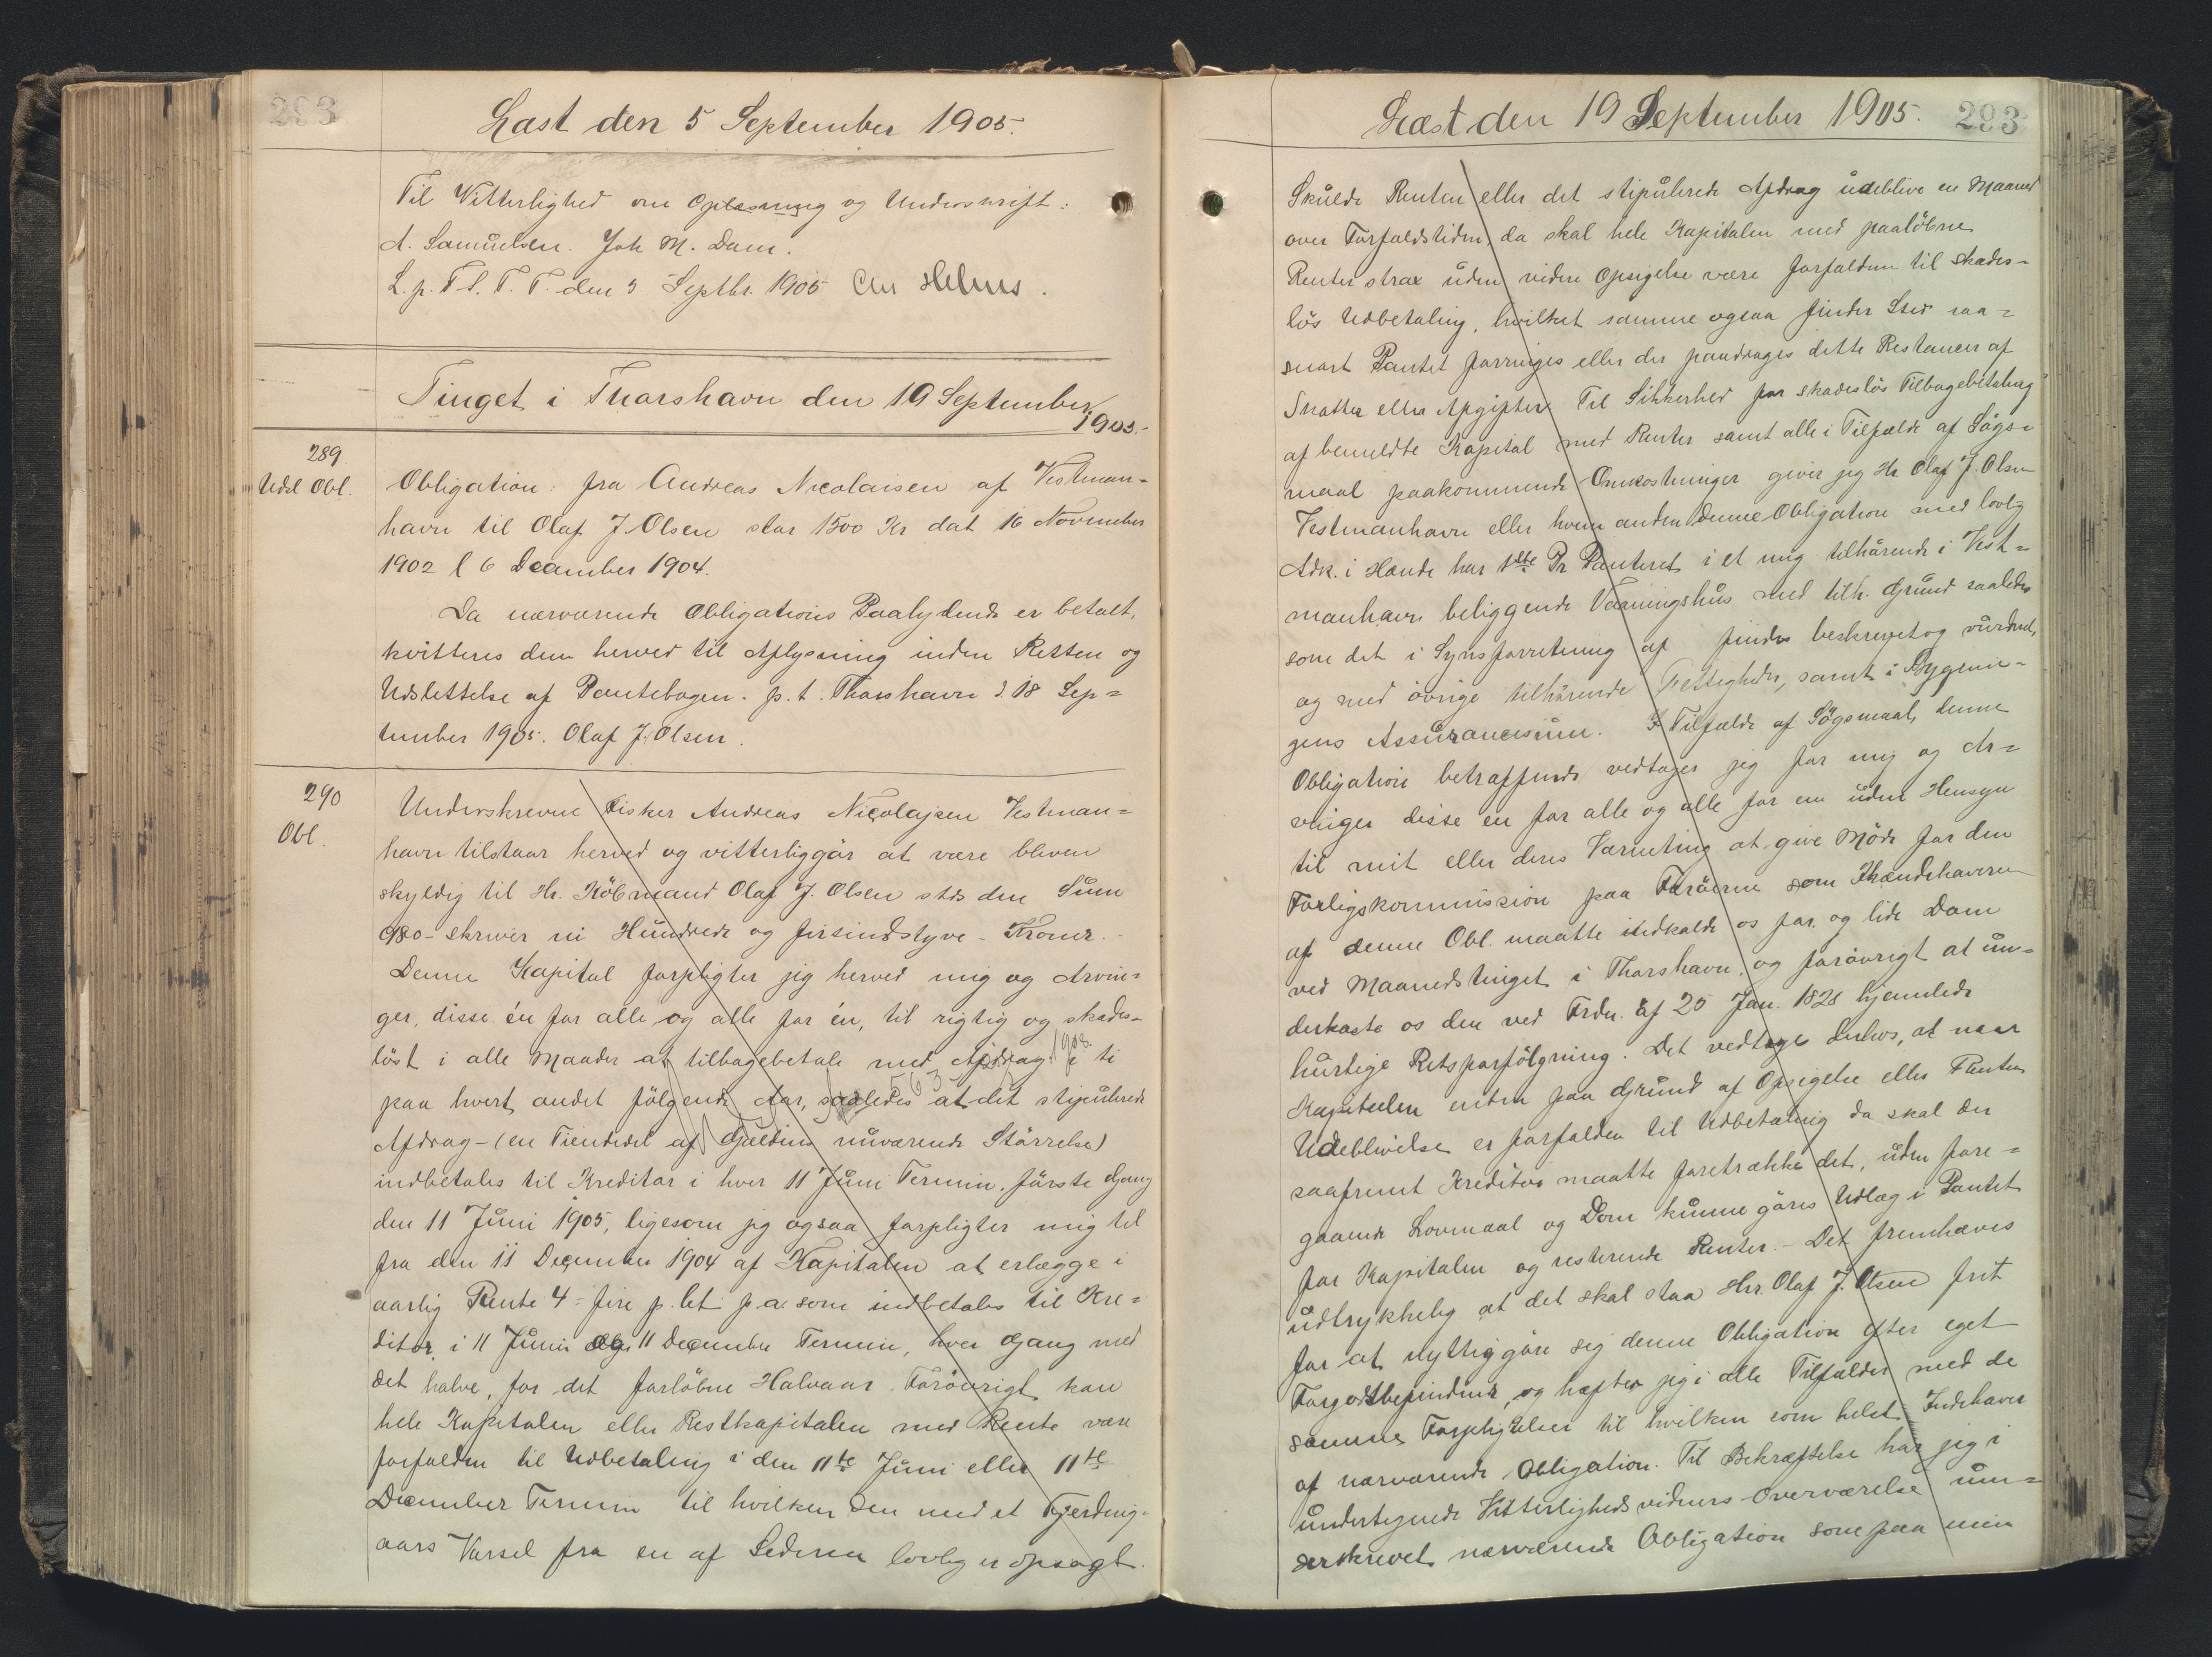 293
Læst den 5 September 1905.
Til Vitterlighed om Oplæsning og Underskrift:
A. Samuelsen. Joh M. Dam.
L. p. F S. T. T. den 5 Septbr. 1905 Chr Helms.
Tinget i Thorshavn den 19 September
1905.-
289
Udsl Obl.
Obligation: fra Andreas Nicolaisen af Vestman-
havn til Olaf J Olsen stor 1500 Kr dat 16 November
1902 l 6 December 1904.
Da nærværende Obligations Paalydende er betalt,
kvitteres den herved til Aflysning inden Retten og
Udslettelse af Pantebogen. p. t. Thorshavn d. 18 Sep=
tember 1905. Olaf J. Olsen.
290
Obl.
Underskrevne Fisker Andreas Nicolajsen Vestman=
havn tilstaar herved og vitterliggör at være bleven
skyldig til Hr. Köbmand Olaf J. Olsen stds den Sum
980- skriver ni Hundrede og firsindstyve - Kroner.-
Denne Kapital forpligter jeg herved mig og Arvin=
ger, disse én for alle og alle for én, til rigtig og skades-
löst i alle Maader at tilbagebetale med Afdrag i ti
1908.
563
paa hvert andet fölgende Aar, saaledes at det stipulerede
Afdrag - (en Tiendedel af Gjældens nuværende Störrelse)
indbetales til Kreditor i hver 11 Juni Termin, förste Gang
den 11 Juni 1905, ligesom jeg ogsaa forpligter mig til
fra den 11 December 1904 af Kapitalen at erlægge i
aarlig Rente 4 = fire p. Ct p.a. som indbetales til Kre=
ditor i 11 Juni og 11 December Termin, hver Gang med
det halve, for det forlöbne Halvaar. Forövrigt kan
hele Kapitalen eller Restkapitalen med Rente være
forfalden til Udbetaling i den 11te Juni eller 11te
December Termin til hvilken den med et Fjerding-
aars Varsel fra en af Siderne lovlig er opsagt.
Læst den 19 September 1905.
293
Skulde Renten eller det stipulerede Afdrag udeblive en Maaned
over Forfaldstiden, da skal hele Kapitalen med paalöbne
Renter strax uden videre Opsigelse være forfalden til skades-
lös Udbetaling, hvilket samme ogsaa finder Sted saa=
snart Pantet forringes eller der paadrages dette Restancer af
Skatter eller Afgifter. Til Sikkerhed for skadeslös Tilbagebetaling
af bemeldte Kapital med Renter samt alle i Tilfælde af Sögs=
maal paakommende Omkostninger giver jeg Hr. Olaf J. Olsen
Vestmanhavn eller hvem anden denne Obligation med lovlig
Adk. i Hænde har 1ste Pr Panteret i et mig tilhörende i Vest=
manhavn beliggende Vaaningshus med tilh. Grund saaledes
som det i Synsforretning af findes beskrevet og vurderet,
og med övrige tilhörende Rettigheder, samt i Bygnin-
gens Assurancesum. I Tilfælde af Sögsmaal denne
Obligation betræffende vedtager jeg for mig og Ar=
vinger disse én for alle og alle for en uden Hensyn
til mit eller deres Værneting at give Möde for den
Forligskommission paa Færöerne som Ihændehaveren
af denne Obl. maatte indkalde os for, og lide Dom
ved Maanedstinget i Thorshavn, og forövrigt at un=
derkaste os den ved Frdn. af 25 Jan. 1828 hjemlede
hurtige Retsforfölgning. Det vedtages derhos, at naar
Kapitalen enten paa Grund af Opsigelse eller Rentens
Udeblivelse er forfalden til Udbetaling da skal der
saafremt Kreditor maatte foretrække det, uden fore=
gaaende Lovmaal og Dom kunne göres Udlæg i Pantet
for Kapitalen og resterende Renter. - Det fremhæves
udtrykkelig at det skal staa Hr. Olaf J. Olsen frit
for at nyttiggöre sig denne Obligation efter eget
Forgodtbefindende, og hæfter jeg i alle Tilfælder med de
samme Forpligtelser til hvilken som helst Indehaver
af nærværende Obligation. Til Bekræftelse har jeg i
undertegnede Vitterlighedsvidners Overværelse un=
derskrevet nærværende Obligation som paa min